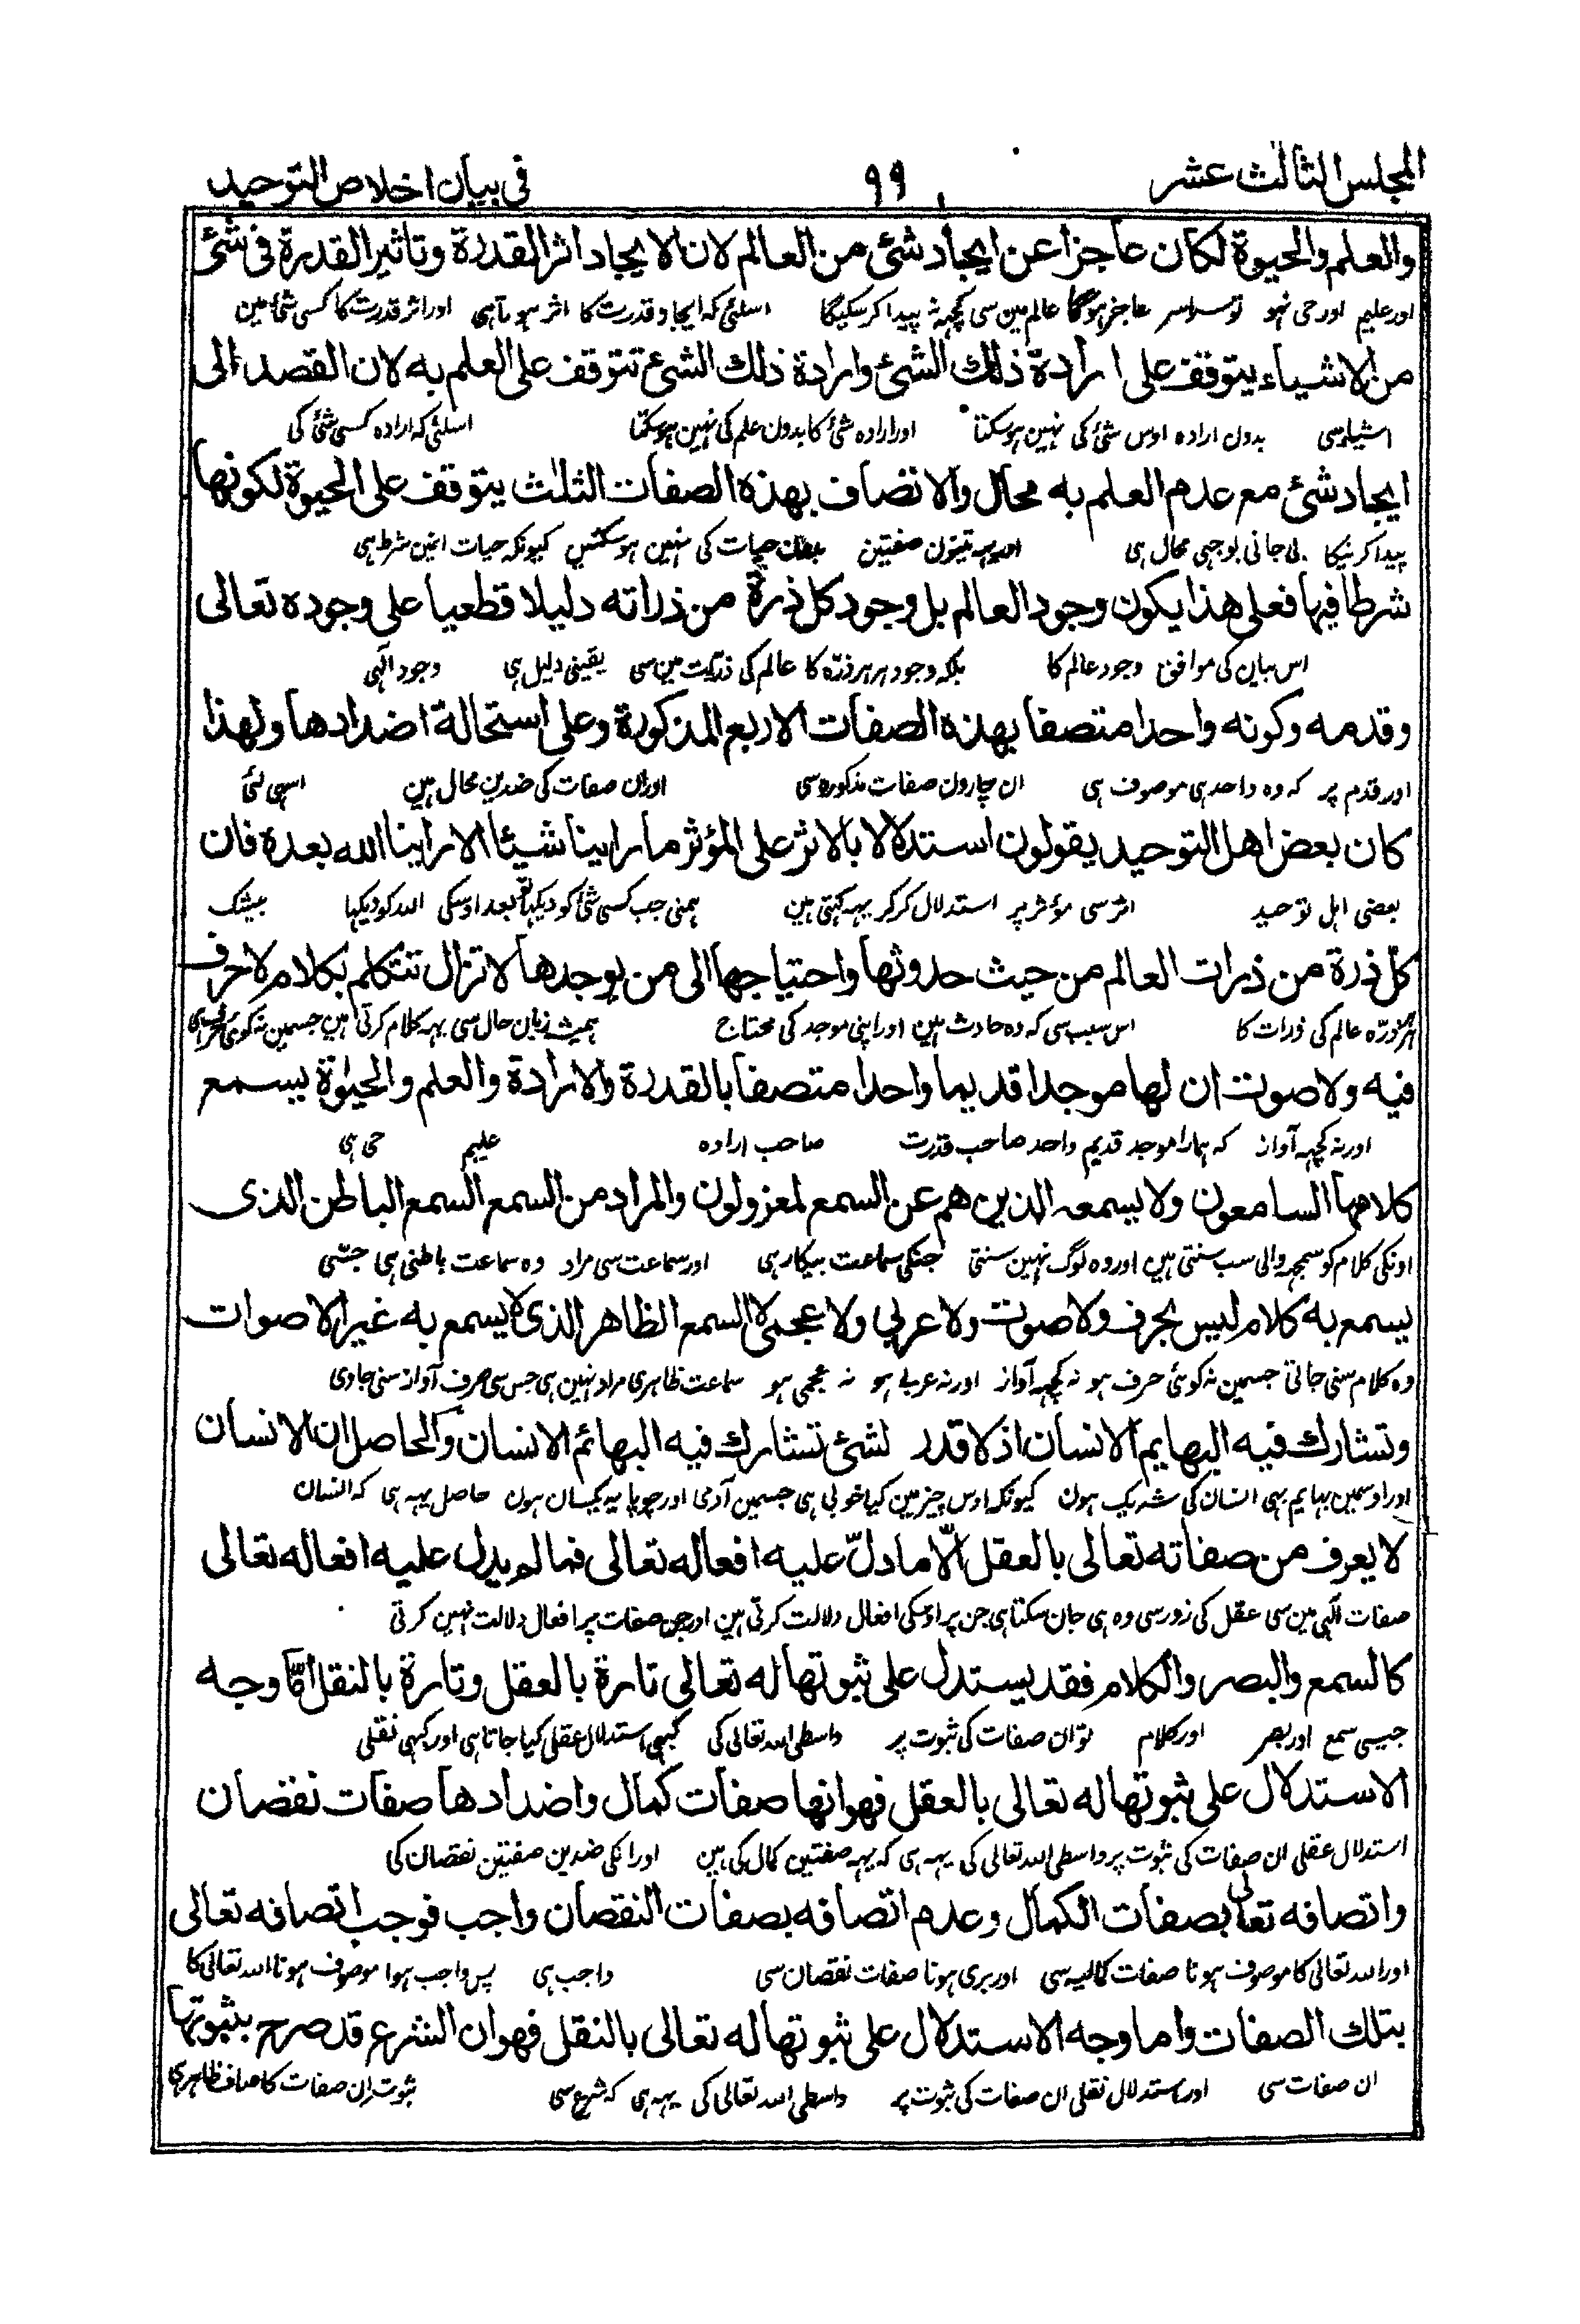 المجلس الثالث عشر
٩٩
فی بیان اخلاص التوحید
والعلم والحیوة لکان عاجزا عن ایجاد شئ من العالم لان الایجاد اثر القدرة وتاثیر القدرة فی شئ
اور علیم اور حی نہو تو سراسر عاجز ہوگا عالم مین سی کچھہ نہ پیدا کر سکیگا اسلئی کہ ایجاد قدرت کا اثر ہوتا ہی اور اثر قدرت کا کسی شئ مین
من الاشیاء یتوقف علی ارادة ذلك الشئ وارادة ذلك الشئ تتوقف علی العلم به لان القصد الی
اشیاء سی بدون ارادہ اوس شئ کی نہین ہو سکتا اور ارادہ شئ کا بدون علم کی نہین ہو سکتا اسلئی کہ ارادہ کسی شئ کی
ایجاد شئ مع عدم العلم به محال والاتصاف بهذه الصفات الثلث یتوقف علی الحیوة لکونها
پیدا کرنیکا بی جانی بوجہی محال ہی اور یہہ تینون صفتین بدون حیات کی نہین ہو سکتین کیونکہ حیات انمین شرط ہی
شرطا فیها فعلی هذا یکون وجود العالم بل وجود کل ذرة من ذراته دلیلا قطعیا علی وجوده تعالی
اس بیان کی موافق وجود عالم کا بلکہ وجود ہر ہر ذرہ کا عالم کی ذرّات مین سی یقینی دلیل ہی وجود الٰہی
وقدمه وکونه واحدا متصفا بهذه الصفات الاربع المذکورة وعلی استحالة اضدادها ولهذا
اور قدم پر کہ وہ واحد ہی موصوف ہی ان چارون صفات مذکورہ سی اور ان صفات کی ضدین محال ہین اسہی لئی
کان بعض اهل التوحید یقولون استدلالا بالاثر علی المؤثر ما راینا شیئا الا راینا الله بعده فان
بعضی اہل توحید اثر سی مؤثر پر استدلال کر کر یہہ کہتی ہین ہمنی جب کسی شئ کو دیکہا تو بعد اوسکی اللہ کو دیکہا بیشک
کل ذرة من ذرات العالم من حیث حدوثها واحتیاجها الی من یوجدها لا تزال تتکلم بکلام لا حرف
ہر ذرّہ عالم کی ذرات کا اس سبب سی کہ وہ حادث ہین اور اپنی موجد کی محتاج ہمیشہ زبان حال سی یہہ کلام کرتی ہین جسمین نہ کوئی حرف ہی
فیه ولا صوت ان لها موجدا قدیما واحدا متصفا بالقدرة والارادة والعلم والحیوٰة یسمع
اور نہ کچھہ آواز کہ ہمارا موجد قدیم واحد صاحب قدرت صاحب ارادہ علیم حی ہی
کلامها السامعون ولا یسمعه الذین هم عن السمع لمعزولون والمراد من السمع السمع الباطن الذی
اونکی کلام کو سمجھہ والی سب سنتی ہین اور وہ لوگ نہین سنتی جنکی سماعت بیکار ہی اور سماعت سی مراد وہ سماعت باطنی ہی جسّی
یسمع به کلام لیس بحرف ولا صوت ولا عربی ولا عجمی لا السمع الظاهر الذی لا یسمع به غیر الاصوات
وہ کلام سنی جاتی جسمین نہ کوئی حرف ہو نہ کچھہ آواز اور نہ عربی ہو نہ عجمی ہو سماعت ظاہری مراد نہین ہی جس سی صرف آواز سنی جاوی
وتشارك فیه البهایم الانسان اذ لا قدر لشئ تشارك فیه البهائم الانسان والحاصل ان الانسان
اور اوسمین بہایم بہی انسان کی شریک ہون کیونکہ اوس چیز مین کیا خوبی ہی جسمین آدمی اور چوپایہ یکسان ہون حاصل یہہ ہی کہ انسان
لا یعرف من صفاته تعالی بالعقل الّا ما دلّ علیه افعاله تعالی فما لم یدل علیه افعاله تعالی
صفات الٰہی مین سی عقل کی زور سی وہ ہی جان سکتا ہی جن پر اوسکی افعال دلالت کرتی ہین اور جن صفات پر افعال دلالت نہین کرتی
کالسمع والبصر والکلام فقد یستدل علی ثبوتها له تعالی تارة بالعقل وتارة بالنقل امّا وجه
جیسی سمع اور بصر اور کلام تو ان صفات کی ثبوت پر واسطی اللہ تعالی کی کبہی استدلال عقلی کیا جاتا ہی اور کبہی نقلی
الاستدلال علی ثبوتها له تعالی بالعقل فهو انها صفات کمال واضدادها صفات نقصان
استدلال عقلی ان صفات کی ثبوت پر واسطی اللہ تعالی کی یہہ ہی کہ یہہ صفتین کمال کی ہین اور انکی ضدین صفتین نقصان کی
واتصافه تعالی بصفات الکمال وعدم اتصافه بصفات النقصان واجب فوجب اتصافه تعالی
اور اللہ تعالی کا موصوف ہونا صفات کمالیہ سی اور بری ہونا صفات نقصان سی واجب ہی پس واجب ہوا موصوف ہونا اللہ تعالی کا
بتلك الصفات واما وجه الاستدلال علی ثبوتها له تعالی بالنقل فهو ان الشرع قد صرح بثبوتها
ان صفات سی اور استدلال نقلی ان صفات کی ثبوت پر واسطی اللہ تعالی کی یہہ ہی کہ شرع سی ثبوت ان صفات کا صاف ظاہر ہی